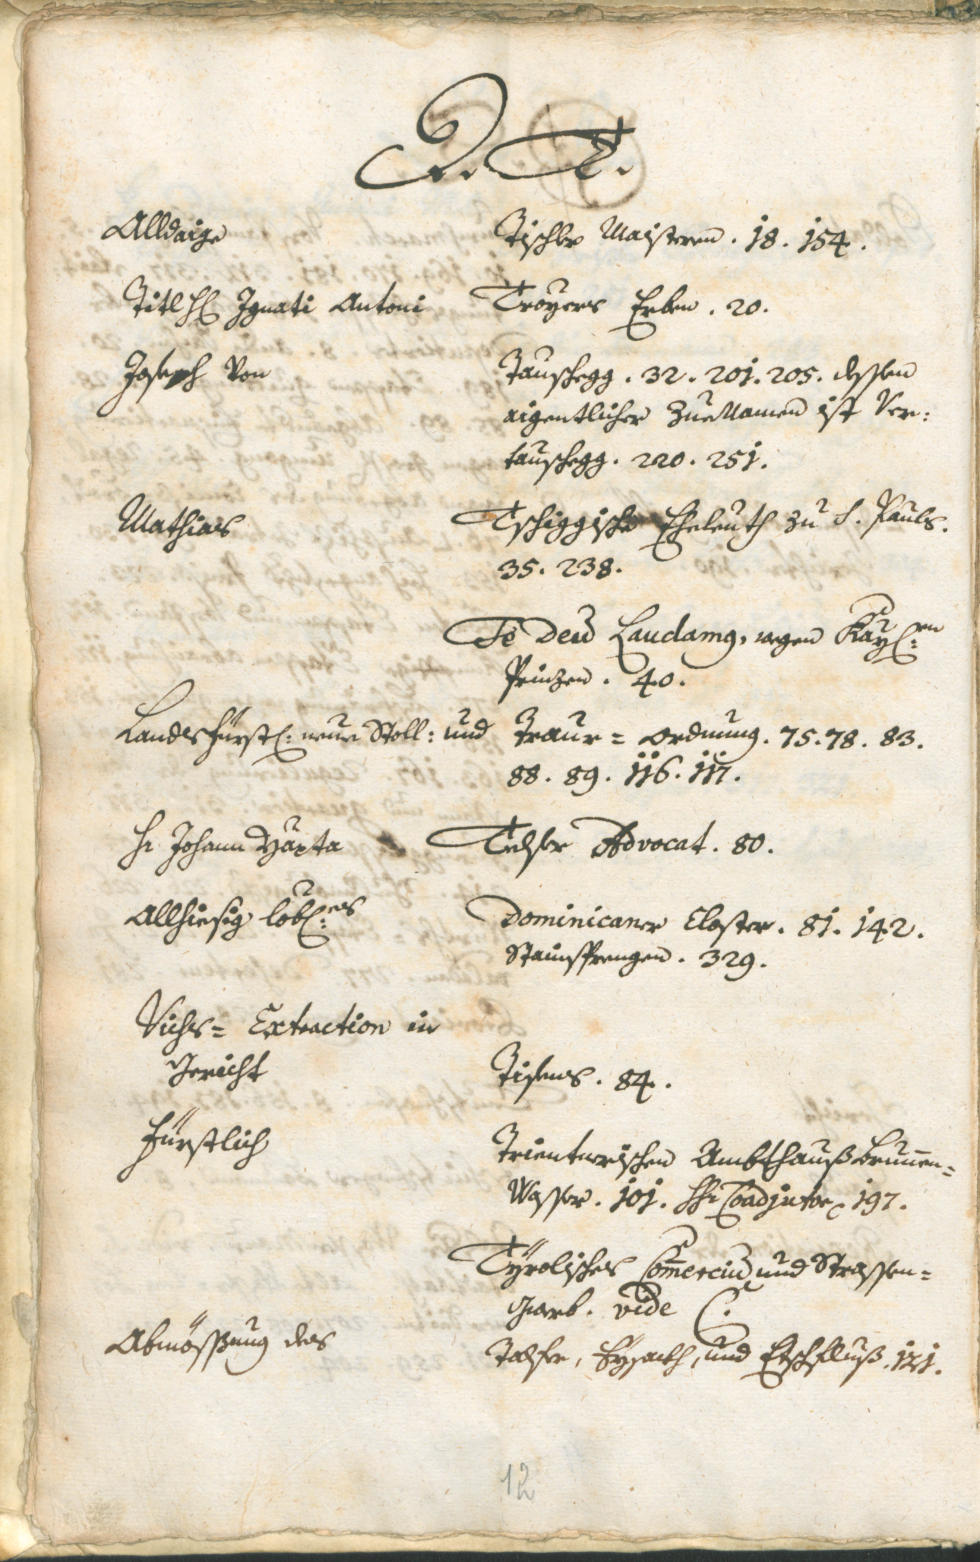 D. T.
Alldaige Tischler Maistern. 18. 154.
Titl H Ignati Antoni Troyers Erben. 20.
Joseph Von Tauschegg. 32. 201. 205. dessen
aigentlicher ZueNamen ist Ver:
tauschegg. 220. 251.
Mathias Tschiggische Eheleuth zu S. Pauls.
35. 238.
Te Deu Laudamg, wegen Kay:en
Prinzen. 40.
Landsfürstl: neue Stoll: und Traur= ordnung. 75. 78. 83.
88. 89. 116. 117.
H Johann Bapta Telser Advocat. 80.
Allhiesig lobl:es Dominicaner Closter. 81. 142.
Stainsprengen. 329.
Vichs= Extraction in
Gericht Tisens. 84.
Fürstlich Trientnerischen Ambthauß Brunnen=
Wasser. 101. H Coadjutor 197.
Tyrolisches Commercium und Strassen=
Harb. vide C.
Abmössung des Talfer, Eysackh, und Etschfluß. 121.
12